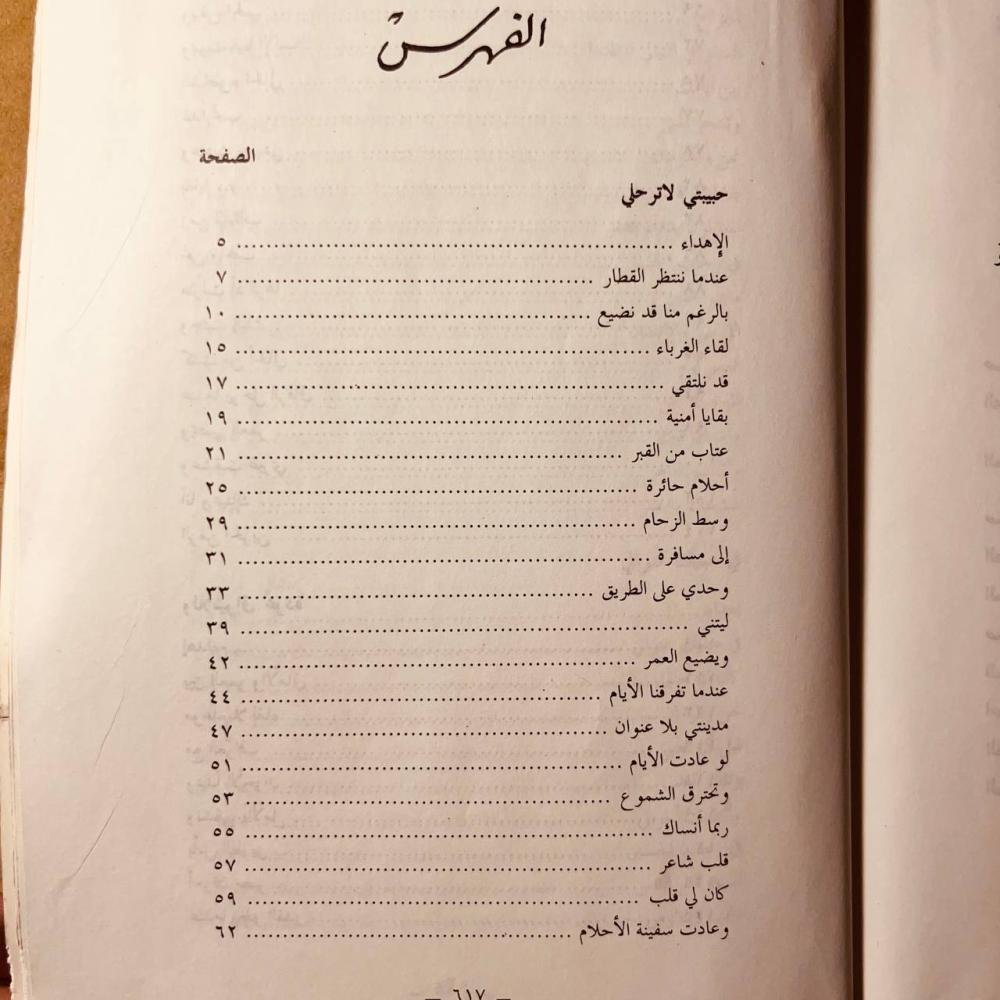 الفهرس
الصفحة
حبيبتي لاترحلي
الإهداء ..... ٥
عندما ننتظر القطار ..... ٧
بالرغم منا قد نضيع ..... ١٠
لقاء الغرباء ..... ١٥
قد نلتقي ..... ١٧
بقايا أمنية ..... ١٩
عتاب من القبر ..... ٢١
أحلام حائرة ..... ٢٥
وسط الزحام ..... ٢٩
إلى مسافرة ..... ٣١
وحدي على الطريق ..... ٣٣
ليتني ..... ٣٩
ويضيع العمر ..... ٤٢
عندما تفرقنا الأيام ..... ٤٤
مدينتي بلا عنوان ..... ٤٧
لو عادت الأيام ..... ٥١
وتحترق الشموع ..... ٥٣
ربما أنساك ..... ٥٥
قلب شاعر ..... ٥٧
كان لي قلب ..... ٥٩
وعادت سفينة الأحلام ..... ٦٢
— ٦١٧ —